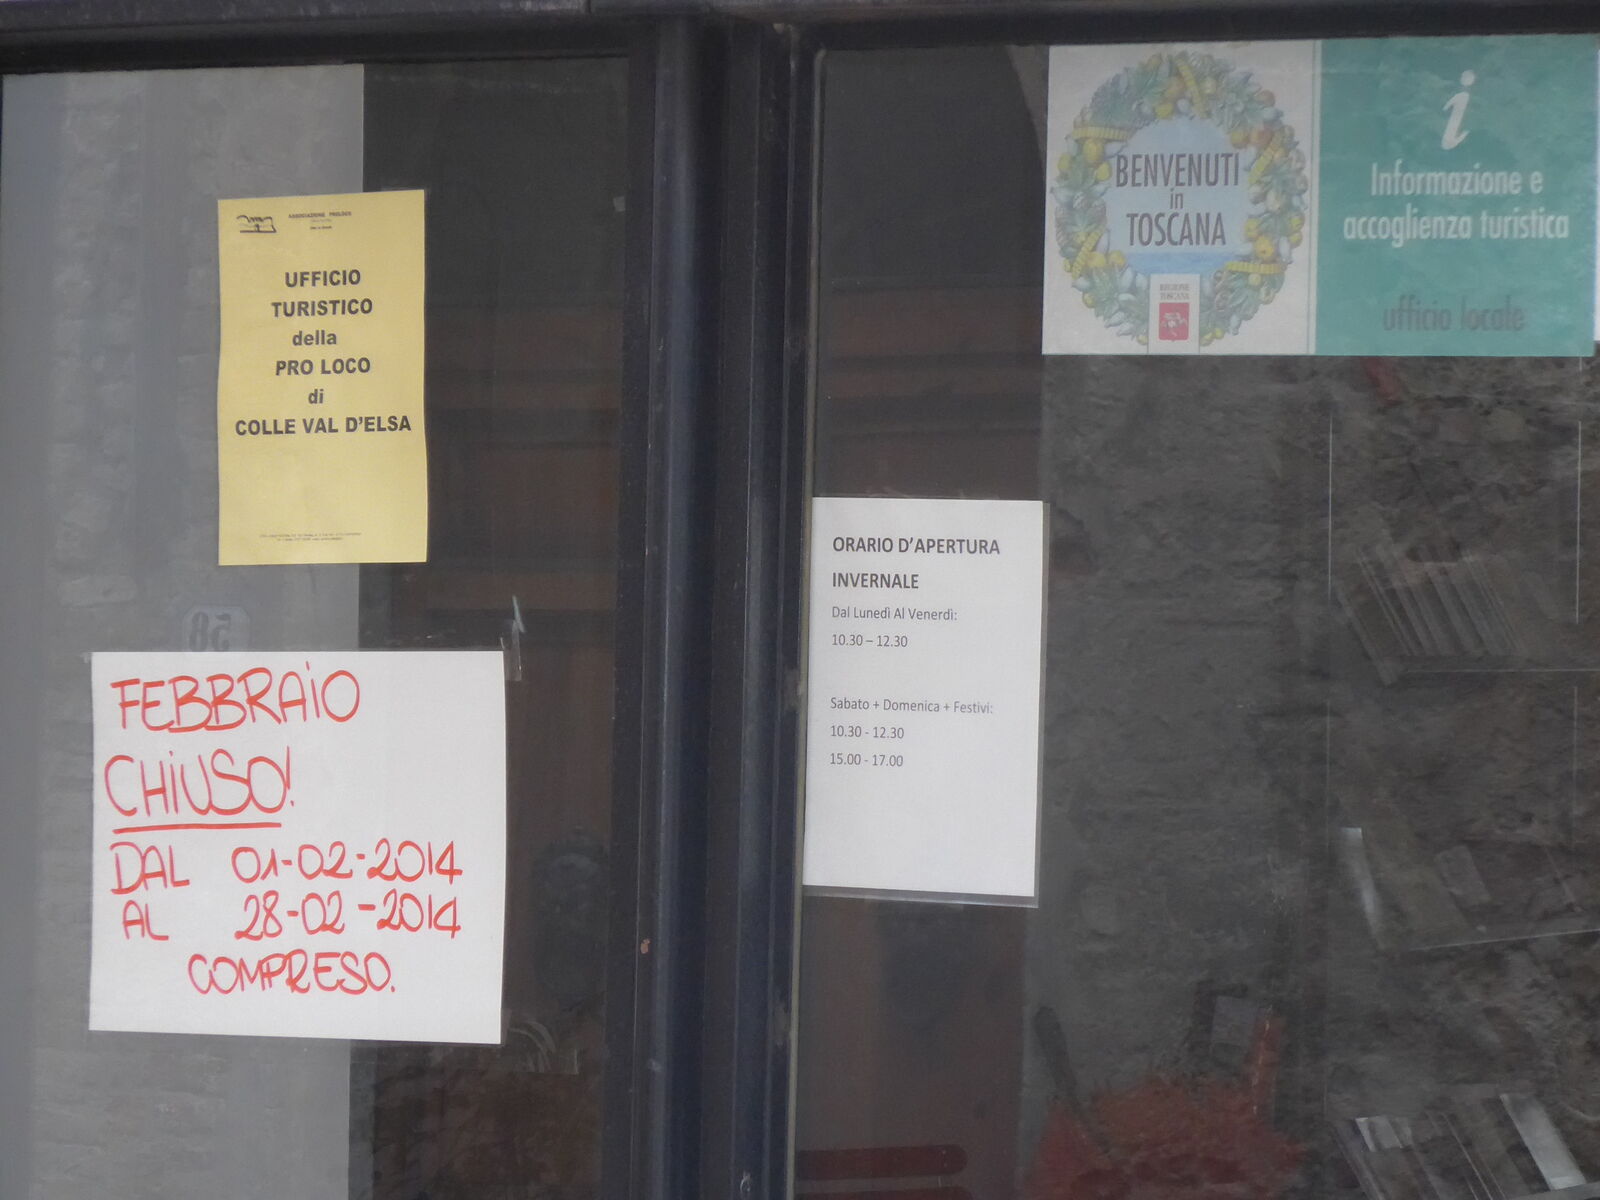 ASSOCIAZIONE PROLOCO
UFFICIO
TURISTICO
della
PRO LOCO
di
COLLE VAL D'ELSA
58
FEBBRAIO
CHIUSO!
DAL 01-02-2014
AL 28-02-2014
COMPRESO.
ORARIO D'APERTURA
INVERNALE
Dal Lunedì Al Venerdì:
10.30 – 12.30
Sabato + Domenica + Festivi:
10.30 - 12.30
15.00 - 17.00
BENVENUTI
in
TOSCANA
REGIONE
TOSCANA
i
Informazione e
accoglienza turistica
ufficio locale